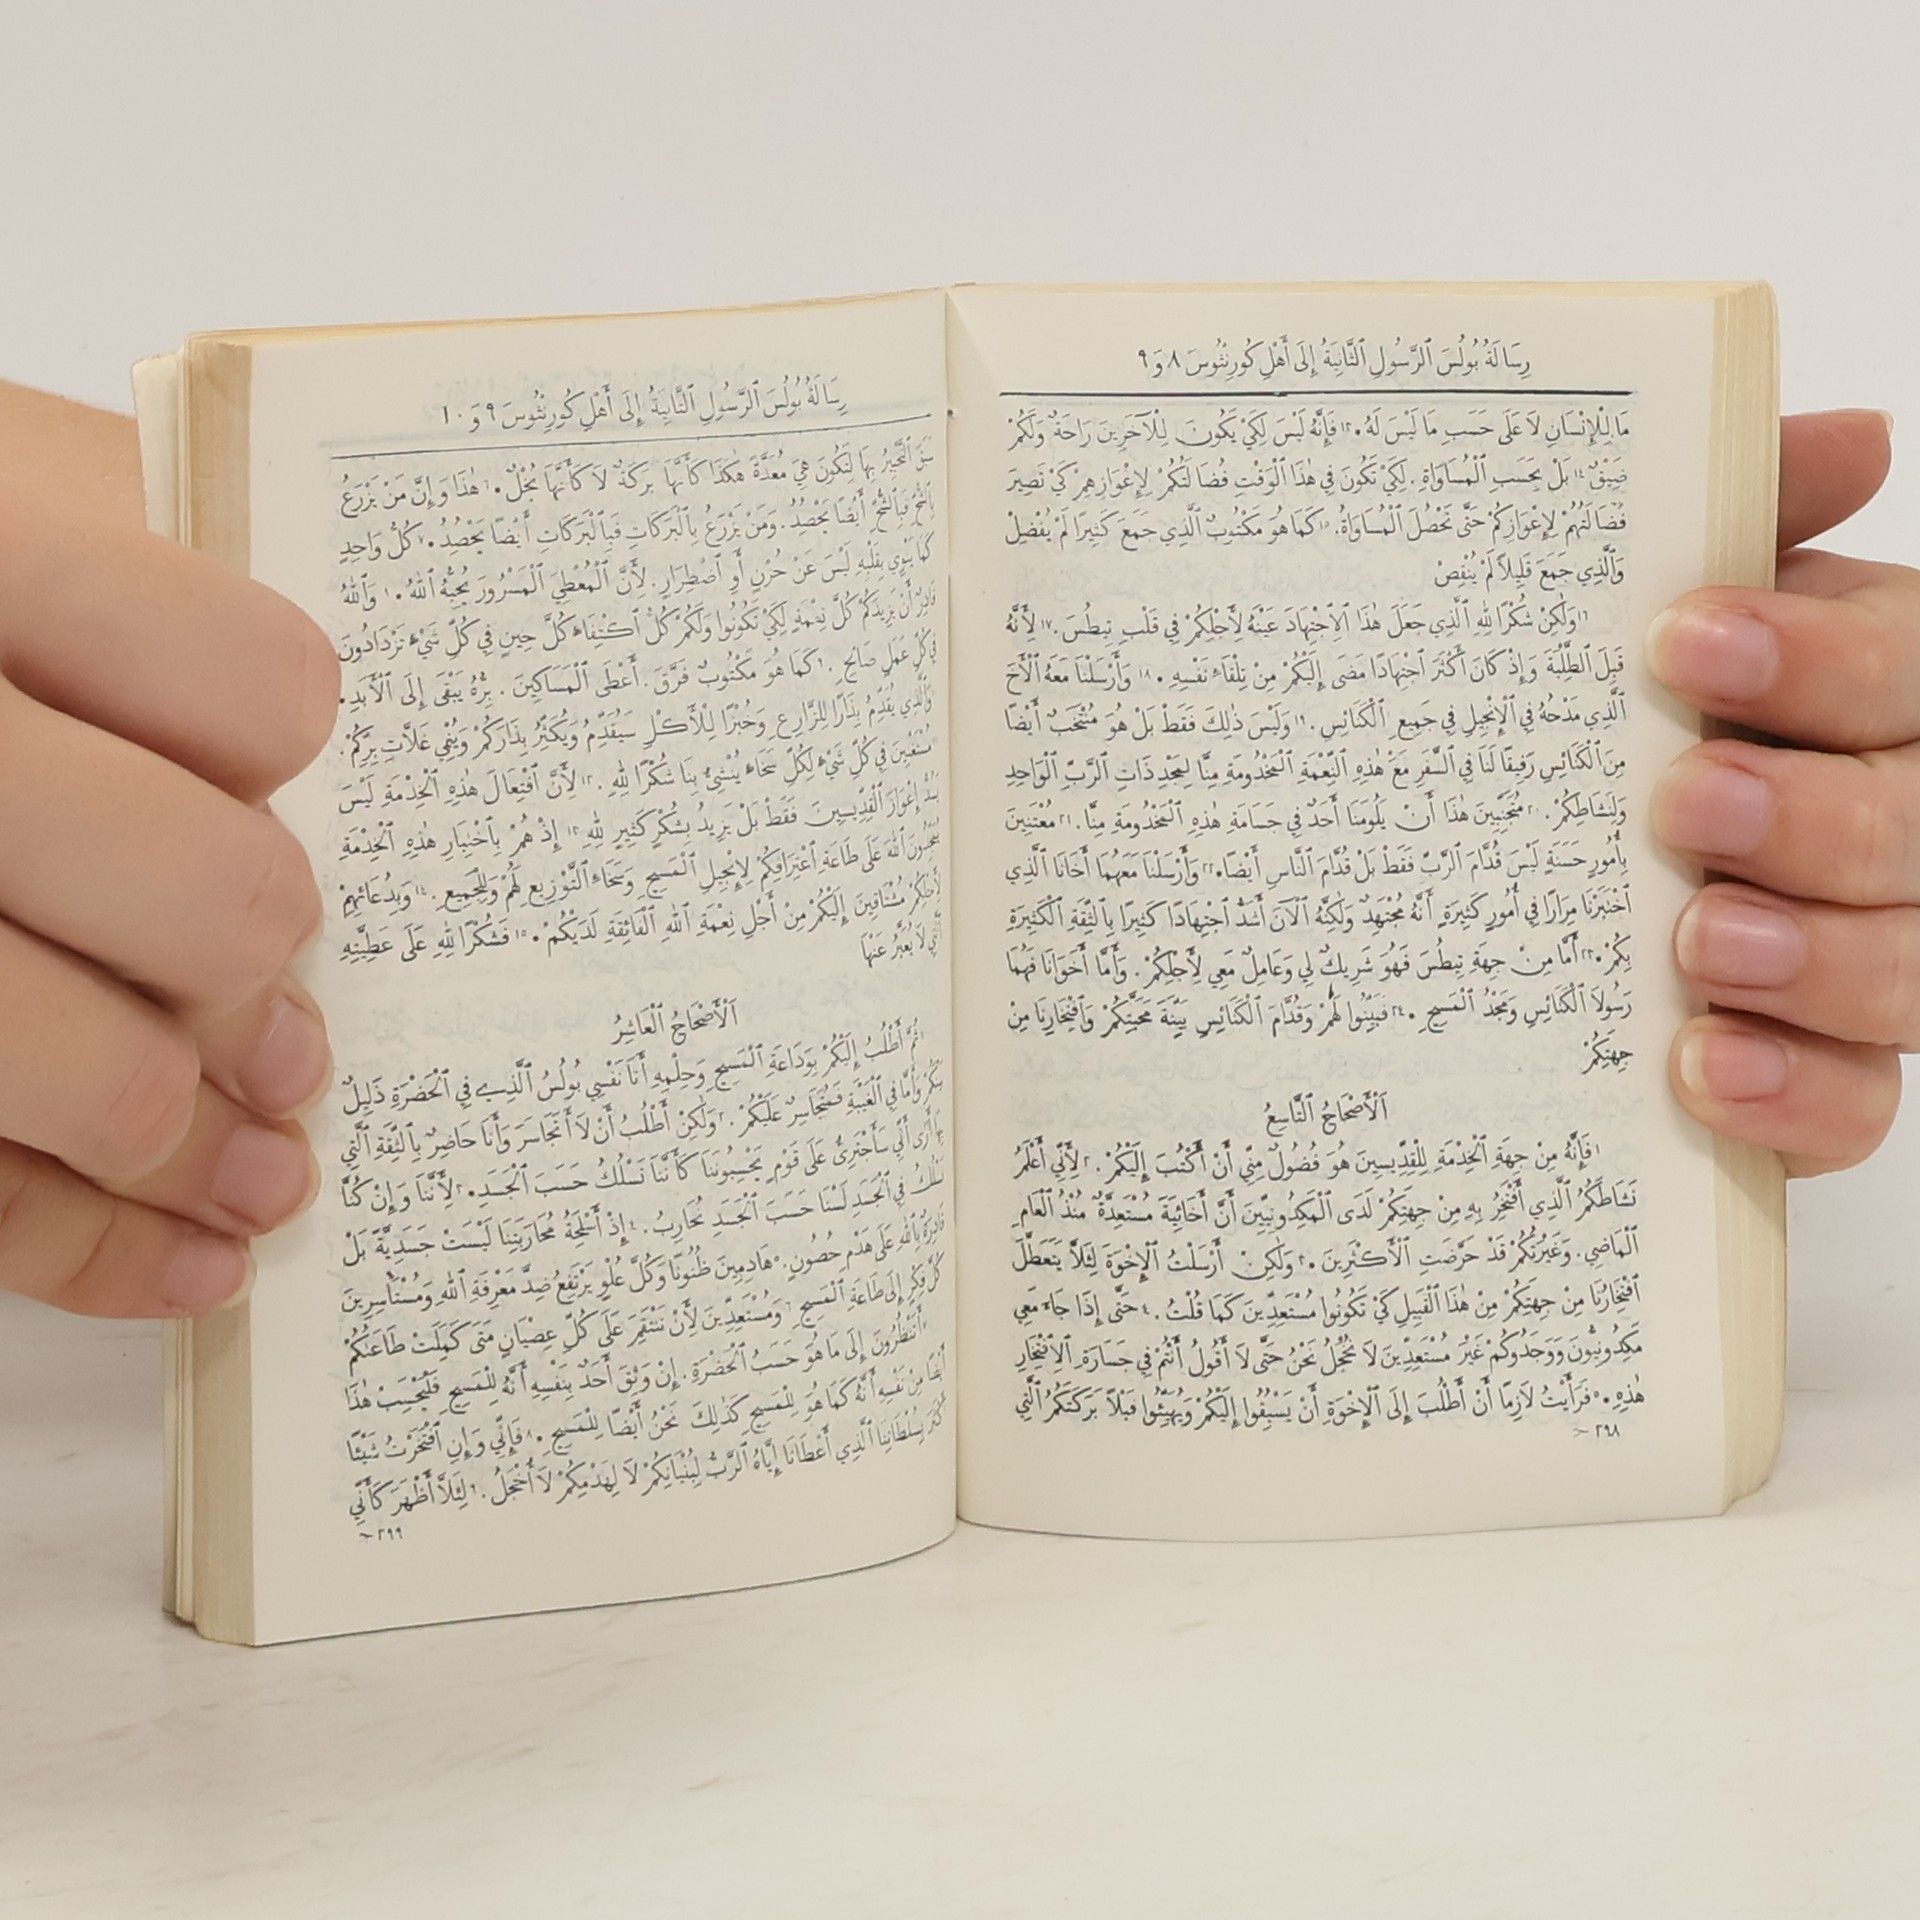 رِسَالَةُ بُولُسَ ٱلرَّسُولِ ٱلثَّانِيَةُ إِلَى أَهْلِ كُورِنْثُوسَ ٨ وَ ٩
مَا لِلْإِنْسَانِ لَا عَلَى حَسَبِ مَا لَيْسَ لَهُ. ١٣ فَإِنَّهُ لَيْسَ لِكَيْ يَكُونَ لِلْآخَرِينَ رَاحَةٌ وَلَكُمْ
ضِيْقٌ ١٤ بَلْ بِحَسَبِ ٱلْمُسَاوَاةِ. لِكَيْ تَكُونَ فِي هٰذَا ٱلْوَقْتِ فُضَالَتُكُمْ لِإِعْوَازِهِمْ كَيْ تَصِيرَ
فُضَالَتُهُمْ لِإِعْوَازِكُمْ حَتَّى تَحْصُلَ ٱلْمُسَاوَاةُ. ١٥ كَمَا هُوَ مَكْتُوبٌ ٱلَّذِي جَمَعَ كَثِيرًا لَمْ يُفْضِلْ
وَٱلَّذِي جَمَعَ قَلِيلًا لَمْ يُنْقِصْ
١٦ وَلٰكِنْ شُكْرًا لِلّٰهِ ٱلَّذِي جَعَلَ هٰذَا ٱلِٱجْتِهَادَ عَيْنَهُ لِأَجْلِكُمْ فِي قَلْبِ تِيطُسَ. ١٧ لِأَنَّهُ
قَبِلَ ٱلطِّلْبَةَ وَإِذْ كَانَ أَكْثَرَ ٱجْتِهَادًا مَضَى إِلَيْكُمْ مِنْ تِلْقَاءِ نَفْسِهِ. ١٨ وَأَرْسَلْنَا مَعَهُ ٱلْأَخَ
ٱلَّذِي مَدْحُهُ فِي ٱلْإِنْجِيلِ فِي جَمِيعِ ٱلْكَنَائِسِ. ١٩ وَلَيْسَ ذٰلِكَ فَقَطْ بَلْ هُوَ مُنْتَخَبٌ أَيْضًا
مِنَ ٱلْكَنَائِسِ رَفِيقًا لَنَا فِي ٱلسَّفَرِ مَعَ هٰذِهِ ٱلنِّعْمَةِ ٱلْمَخْدُومَةِ مِنَّا لِمَجْدِ ذَاتِ ٱلرَّبِّ ٱلْوَاحِدِ
وَلِنَشَاطِكُمْ. ٢٠ مُتَجَنِّبِينَ هٰذَا أَنْ يَلُومَنَا أَحَدٌ فِي جَسَامَةِ هٰذِهِ ٱلْمَخْدُومَةِ مِنَّا. ٢١ مُعْتَنِينَ
بِأُمُورٍ حَسَنَةٍ لَيْسَ قُدَّامَ ٱلرَّبِّ فَقَطْ بَلْ قُدَّامَ ٱلنَّاسِ أَيْضًا. ٢٢ وَأَرْسَلْنَا مَعَهُمَا أَخَانَا ٱلَّذِي
ٱخْتَبَرْنَا مِرَارًا فِي أُمُورٍ كَثِيرَةٍ أَنَّهُ مُجْتَهِدٌ وَلٰكِنَّهُ ٱلْآنَ أَشَدُّ ٱجْتِهَادًا كَثِيرًا بِٱلثِّقَةِ ٱلْكَثِيرَةِ
بِكُمْ. ٢٣ أَمَّا مِنْ جِهَةِ تِيطُسَ فَهُوَ شَرِيكٌ لِي وَعَامِلٌ مَعِي لِأَجْلِكُمْ. وَأَمَّا أَخَوَانَا فَهُمَا
رَسُولَا ٱلْكَنَائِسِ وَمَجْدُ ٱلْمَسِيحِ. ٢٤ فَبَيِّنُوا لَهُمْ وَقُدَّامَ ٱلْكَنَائِسِ بَيِّنَةَ مَحَبَّتِكُمْ وَٱفْتِخَارِنَا مِنْ
جِهَتِكُمْ
اَلْأَصْحَاحُ ٱلتَّاسِعُ
١ فَإِنَّهُ مِنْ جِهَةِ ٱلْخِدْمَةِ لِلْقِدِّيسِينَ هُوَ فُضُولٌ مِنِّي أَنْ أَكْتُبَ إِلَيْكُمْ. ٢ لِأَنِّي أَعْلَمُ
نَشَاطَكُمُ ٱلَّذِي أَفْتَخِرُ بِهِ مِنْ جِهَتِكُمْ لَدَى ٱلْمَكِدُونِيِّينَ أَنَّ أَخَائِيَةَ مُسْتَعِدَّةٌ مُنْذُ ٱلْعَامِ
ٱلْمَاضِي. وَغَيْرَتُكُمْ قَدْ حَرَّضَتِ ٱلْأَكْثَرِينَ. ٣ وَلٰكِنْ أَرْسَلْتُ ٱلْإِخْوَةَ لِئَلَّا يَتَعَطَّلَ
ٱفْتِخَارُنَا مِنْ جِهَتِكُمْ مِنْ هٰذَا ٱلْقَبِيلِ كَيْ تَكُونُوا مُسْتَعِدِّينَ كَمَا قُلْتُ. ٤ حَتَّى إِذَا جَاءَ مَعِي
مَكِدُونِيُّونَ وَوَجَدُوكُمْ غَيْرَ مُسْتَعِدِّينَ لَا نُخْجَلُ نَحْنُ حَتَّى لَا أَقُولُ أَنْتُمْ فِي جَسَارَةِ ٱلِٱفْتِخَارِ
هٰذِهِ. ٥ فَرَأَيْتُ لَازِمًا أَنْ أَطْلُبَ إِلَى ٱلْإِخْوَةِ أَنْ يَسْبِقُوا إِلَيْكُمْ وَيُهَيِّئُوا قَبْلًا بَرَكَتَكُمُ ٱلَّتِي
٢٩٨
رِسَالَةُ بُولُسَ ٱلرَّسُولِ ٱلثَّانِيَةُ إِلَى أَهْلِ كُورِنْثُوسَ ٩ وَ ١٠
سَبَقَ ٱلتَّخْبِيرُ بِهَا لِتَكُونَ هِيَ مُعَدَّةً هٰكَذَا كَأَنَّهَا بَرَكَةٌ لَا كَأَنَّهَا بُخْلٌ. ٦ هٰذَا وَإِنَّ مَنْ يَزْرَعُ
بِٱلشُّحِّ فَبِٱلشُّحِّ أَيْضًا يَحْصُدُ. وَمَنْ يَزْرَعُ بِٱلْبَرَكَاتِ فَبِٱلْبَرَكَاتِ أَيْضًا يَحْصُدُ. ٧ كُلُّ وَاحِدٍ
كَمَا يَنْوِي بِقَلْبِهِ لَيْسَ عَنْ حُزْنٍ أَوِ ٱضْطِرَارٍ. لِأَنَّ ٱلْمُعْطِيَ ٱلْمَسْرُورَ يُحِبُّهُ ٱللّٰهُ. ٨ وَٱللّٰهُ
قَادِرٌ أَنْ يَزِيدَكُمْ كُلَّ نِعْمَةٍ لِكَيْ تَكُونُوا وَلَكُمْ كُلُّ ٱكْتِفَاءٍ كُلَّ حِينٍ فِي كُلِّ شَيْءٍ تَزْدَادُونَ
فِي كُلِّ عَمَلٍ صَالِحٍ. ٩ كَمَا هُوَ مَكْتُوبٌ فَرَّقَ. أَعْطَى ٱلْمَسَاكِينَ. بِرُّهُ يَبْقَى إِلَى ٱلْأَبَدِ.
وَٱلَّذِي يُقَدِّمُ بِذَارًا لِلزَّارِعِ وَخُبْزًا لِلْأَكْلِ سَيُقَدِّمُ وَيُكَثِّرُ بِذَارَكُمْ وَيُنْمِي غَلَّاتِ بِرِّكُمْ.
مُسْتَغْنِينَ فِي كُلِّ شَيْءٍ لِكُلِّ سَخَاءٍ يُنْشِئُ بِنَا شُكْرًا لِلّٰهِ. ١٢ لِأَنَّ ٱفْتِعَالَ هٰذِهِ ٱلْخِدْمَةِ لَيْسَ
يَسُدُّ إِعْوَازَ ٱلْقِدِّيسِينَ فَقَطْ بَلْ يَزِيدُ بِشُكْرٍ كَثِيرٍ لِلّٰهِ ١٣ إِذْ هُمْ بِٱخْتِبَارِ هٰذِهِ ٱلْخِدْمَةِ
يُمَجِّدُونَ ٱللّٰهَ عَلَى طَاعَةِ ٱعْتِرَافِكُمْ لِإِنْجِيلِ ٱلْمَسِيحِ وَسَخَاءِ ٱلتَّوْزِيعِ لَهُمْ وَلِلْجَمِيعِ. ١٤ وَبِدُعَائِهِمْ
لِأَجْلِكُمْ مُشْتَاقِينَ إِلَيْكُمْ مِنْ أَجْلِ نِعْمَةِ ٱللّٰهِ ٱلْفَائِقَةِ لَدَيْكُمْ. ١٥ فَشُكْرًا لِلّٰهِ عَلَى عَطِيَّتِهِ
ٱلَّتِي لَا يُعَبَّرُ عَنْهَا
اَلْأَصْحَاحُ ٱلْعَاشِرُ
١ ثُمَّ أَطْلُبُ إِلَيْكُمْ بِوَدَاعَةِ ٱلْمَسِيحِ وَحِلْمِهِ أَنَا نَفْسِي بُولُسُ ٱلَّذِي فِي ٱلْحَضْرَةِ ذَلِيلٌ
بَيْنَكُمْ وَأَمَّا فِي ٱلْغَيْبَةِ فَمُتَجَاسِرٌ عَلَيْكُمْ. ٢ وَلٰكِنْ أَطْلُبُ أَنْ لَا أَتَجَاسَرَ وَأَنَا حَاضِرٌ بِٱلثِّقَةِ ٱلَّتِي
بِهَا أَرَى أَنِّي سَأَجْتَرِئُ عَلَى قَوْمٍ يَحْسِبُونَنَا كَأَنَّنَا نَسْلُكُ حَسَبَ ٱلْجَسَدِ. ٣ لِأَنَّنَا وَإِنْ كُنَّا
نَسْلُكُ فِي ٱلْجَسَدِ لَسْنَا حَسَبَ ٱلْجَسَدِ نُحَارِبُ. ٤ إِذْ أَسْلِحَةُ مُحَارَبَتِنَا لَيْسَتْ جَسَدِيَّةً بَلْ
قَادِرَةٌ بِٱللّٰهِ عَلَى هَدْمِ حُصُونٍ. ٥ هَادِمِينَ ظُنُونًا وَكُلَّ عُلْوٍ يَرْتَفِعُ ضِدَّ مَعْرِفَةِ ٱللّٰهِ وَمُسْتَأْسِرِينَ
كُلَّ فِكْرٍ إِلَى طَاعَةِ ٱلْمَسِيحِ ٦ وَمُسْتَعِدِّينَ لِأَنْ نَنْتَقِمَ عَلَى كُلِّ عِصْيَانٍ مَتَى كَمِلَتْ طَاعَتُكُمْ
٧ أَتَنْظُرُونَ إِلَى مَا هُوَ حَسَبُ ٱلْحَضْرَةِ. إِنْ وَثِقَ أَحَدٌ بِنَفْسِهِ أَنَّهُ لِلْمَسِيحِ فَلْيَحْسِبْ هٰذَا
أَيْضًا مِنْ نَفْسِهِ أَنَّهُ كَمَا هُوَ لِلْمَسِيحِ كَذٰلِكَ نَحْنُ أَيْضًا لِلْمَسِيحِ. ٨ فَإِنِّي وَإِنِ ٱفْتَخَرْتُ شَيْئًا
أَكْثَرَ بِسُلْطَانِنَا ٱلَّذِي أَعْطَانَا إِيَّاهُ ٱلرَّبُّ لِبُنْيَانِكُمْ لَا لِهَدْمِكُمْ لَا أُخْجَلُ. ٩ لِئَلَّا أَظْهَرَ كَأَنِّي
٢٩٩